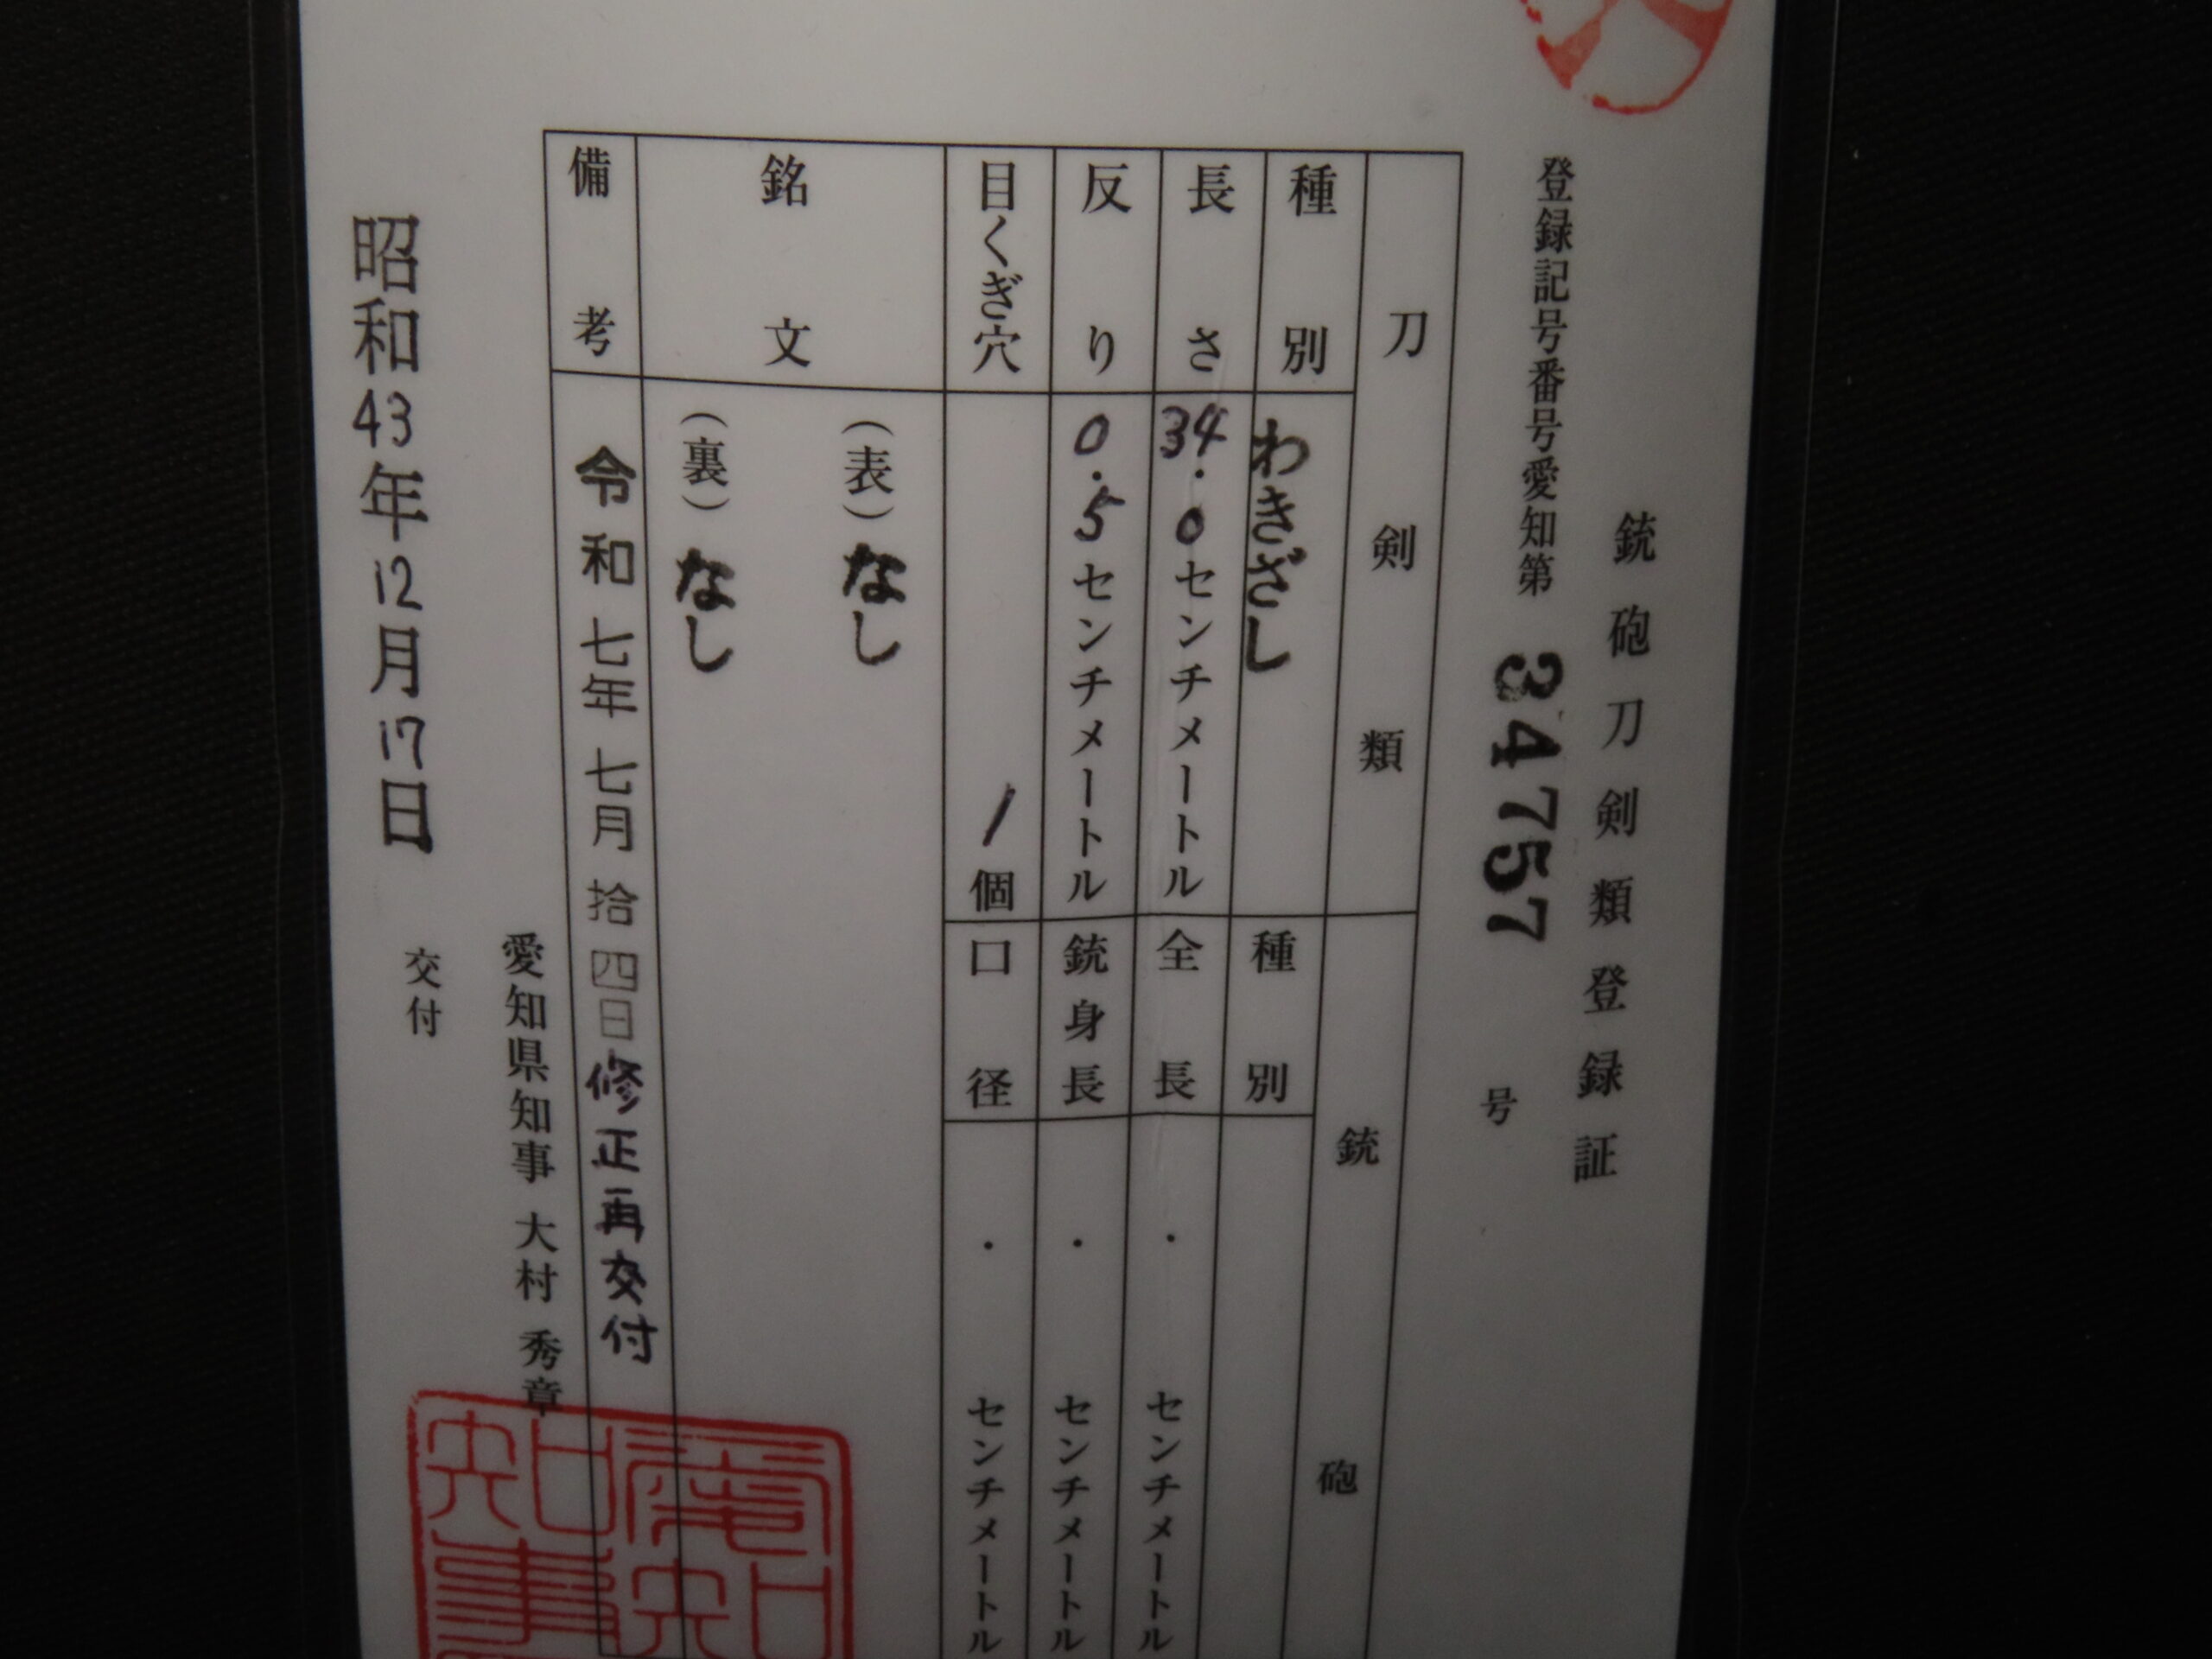 銃砲刀剣類登録証
登録記号番号愛知第 34757 号
刀剣類
種別 わきざし
長さ 34.0センチメートル
反り 0.5センチメートル
目くぎ穴 1個
銘文 (表)なし
(裏)なし
銃砲
種別
全長 ・ センチメートル
銃身長 ・ センチメートル
口径 ・ センチメートル
備考 令和七年七月拾四日修正再交付
愛知県知事 大村 秀章
昭和43年12月17日 交付
愛知
知事